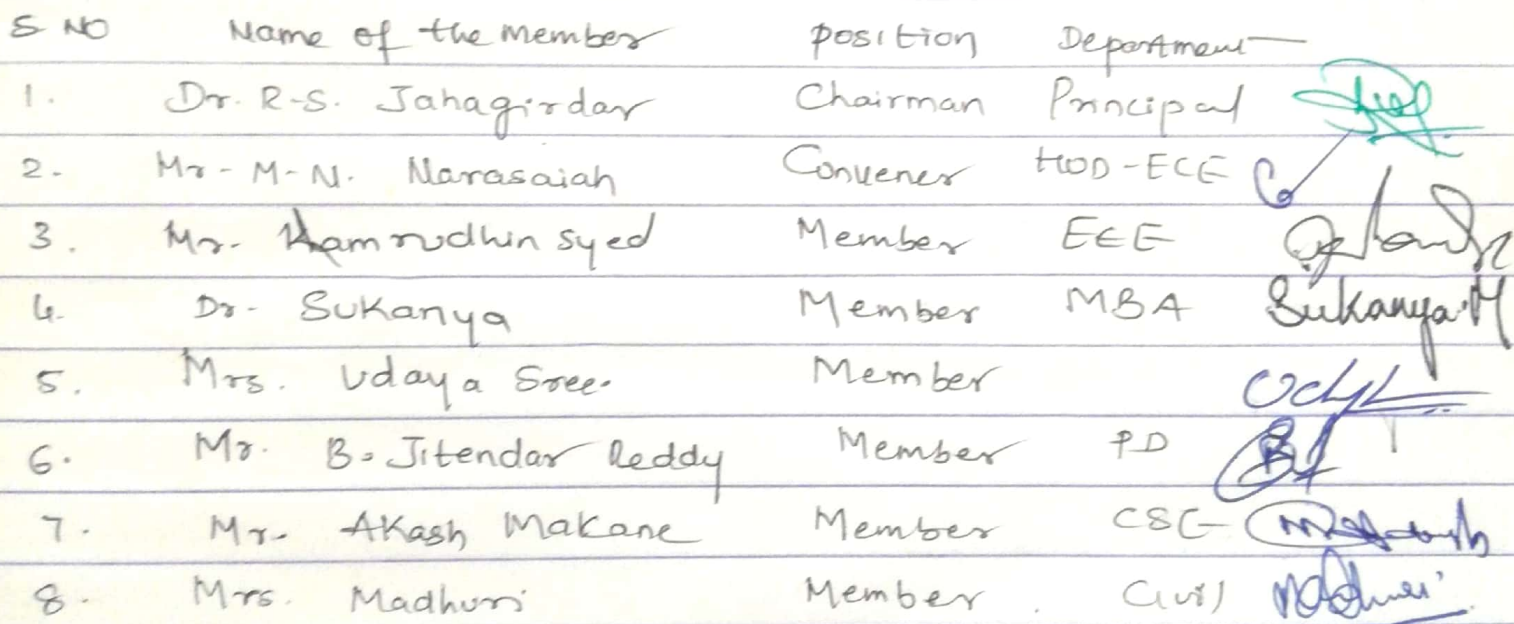 S NO Name of the Member Position Department
1. Dr. R.S. Jahagirdar Chairman Principal
2. Mr. M.N. Narasaiah Convener HOD-ECE
3. Mr. Kamrudhin Syed Member EEE
4. Dr. Sukanya Member MBA Sukanya.M
5. Mrs. Udaya Sree. Member
6. Mr. B. Jitendar Reddy Member PD
7. Mr. Akash Makane Member CSE
8. Mrs. Madhuri Member Civil